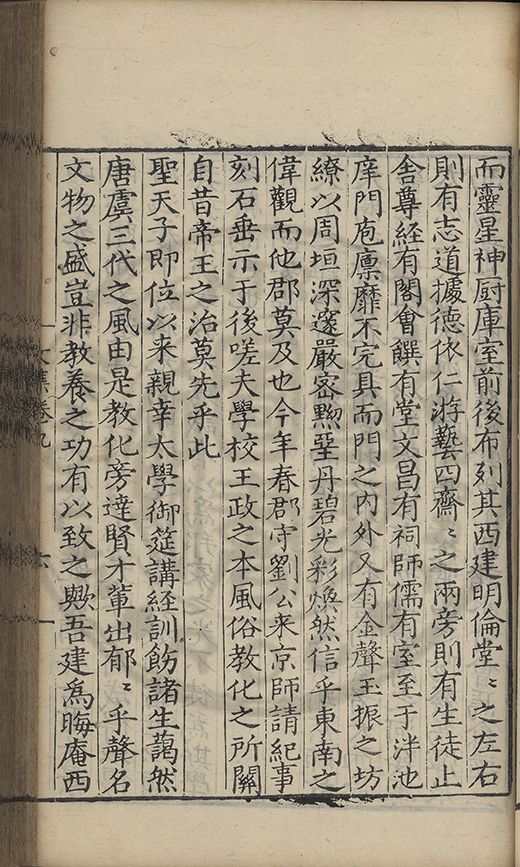 而靈星神厨庫室前後布列其西建明倫堂〻之左右
則有志道據德依仁游藝四齋〻之兩旁則有生徒止
舍尊經有閣會饌有堂文昌有祠師儒有室至于泮池
庠門庖廪靡不完具而門之內外又有金聲玉振之坊
繚以周垣深邃嚴密黝堊丹碧光彩煥然信乎東南之
偉觀而他郡莫及也今年春郡守劉公来京師請紀事
刻石垂示于後嗟夫學校王政之本風俗教化之所關
自昔帝王之治莫先乎此
聖天子即位以来親幸太學御筵講經訓飭諸生藹然
唐虞三代之風由是教化旁達賢才軰出郁〻乎聲名
文物之盛豈非教養之功有以致之歟吾建為晦庵西
文集卷九
六